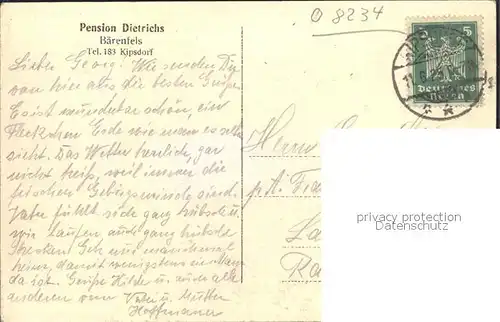 Pension Dietrichs
Bärenfels
Tel. 183 Kipsdorf
O 8234
5
Deutsches
Reich
Lieber Georg! Wir senden Dir
von hier aus die besten Grüße.
Es ist wunderbar schön, ein
Fleckchen Erde wie man es selten
sieht. Das Wetter herrlich, gar
nicht heiß, weil immer die
frischen Gebirgswinde sind.
Vater fühlt sich ganz hübsch u.
wir laufen auch ganz hübsche
Strecken. und manchmal
damit wenigstens ein Mann
da ist. Grüße Hilde u. auch alle
anderen von Vater u. Mutter
Hoffmann
Herrn
p. A.
privacy protection
Datenschutz